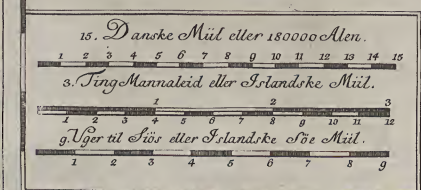 15. Danske Miil eller 180000 Alen.
1 2 3 4 5 6 7 8 9 10 11 12 13 14 15
3. Ting Mannaleid eller Islandske Miil.
1 2 3
1 2 3 4 5 6 7 8 9 10 11 12
9. Uger til Siös eller Islandske Söe Miil.
1 2 3 4 5 6 7 8 9